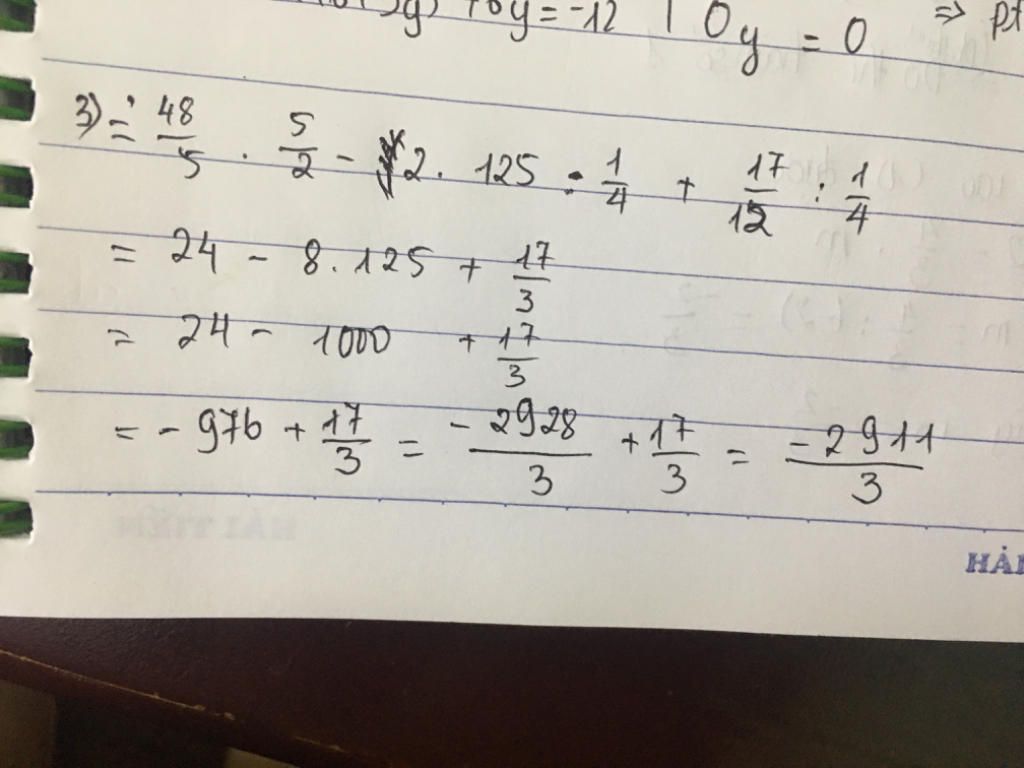 y = -12 | 0y = 0 ⇒ pt
3) = 48/5 . 5/2 - 2 . 125 : 1/4 + 17/12 : 1/4
= 24 - 8.125 + 17/3
= 24 - 1000 + 17/3
= - 976 + 17/3 = - 2928/3 + 17/3 = -2911/3
HẢI